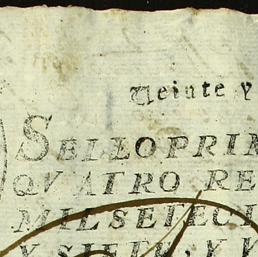 Veinte y
SELLO PRIM
QVATRO RE
MIL SETECI
Y SIETE, Y V